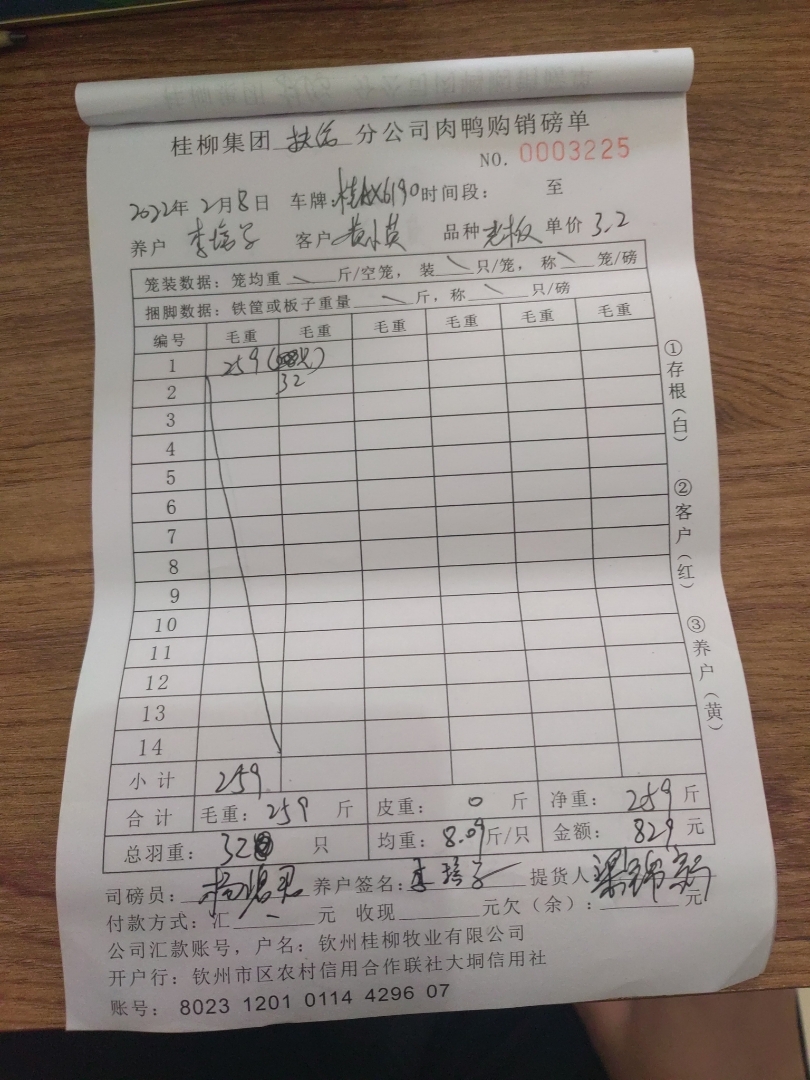 桂柳集团 分公司肉鸭购销磅单
NO. 0003225
2022年2月8日 车牌:桂AX6190时间段: 至
养户 李培子 客户 黄小英 品种 老板 单价 3.2
笼装数据:笼均重 斤/空笼,装 只/笼,称 笼/磅
捆脚数据:铁筐或板子重量 斤,称 只/磅
编号 毛重 毛重 毛重 毛重 毛重 毛重
1 259
2 32
3
4
5
6
7
8
9
10
11
12
13
14
小计 259
合计 毛重: 259 斤 皮重: 0 斤 净重: 259 斤
总羽重: 32 只 均重: 8.09斤/只 金额: 829 元
司磅员: 养户签名: 提货人
付款方式:汇 元 收现 元欠(余): 元
公司汇款账号,户名:钦州桂柳牧业有限公司
开户行:钦州市区农村信用合作联社大垌信用社
账号: 8023 1201 0114 4296 07
①存根(白)
②客户(红)
③养户(黄)